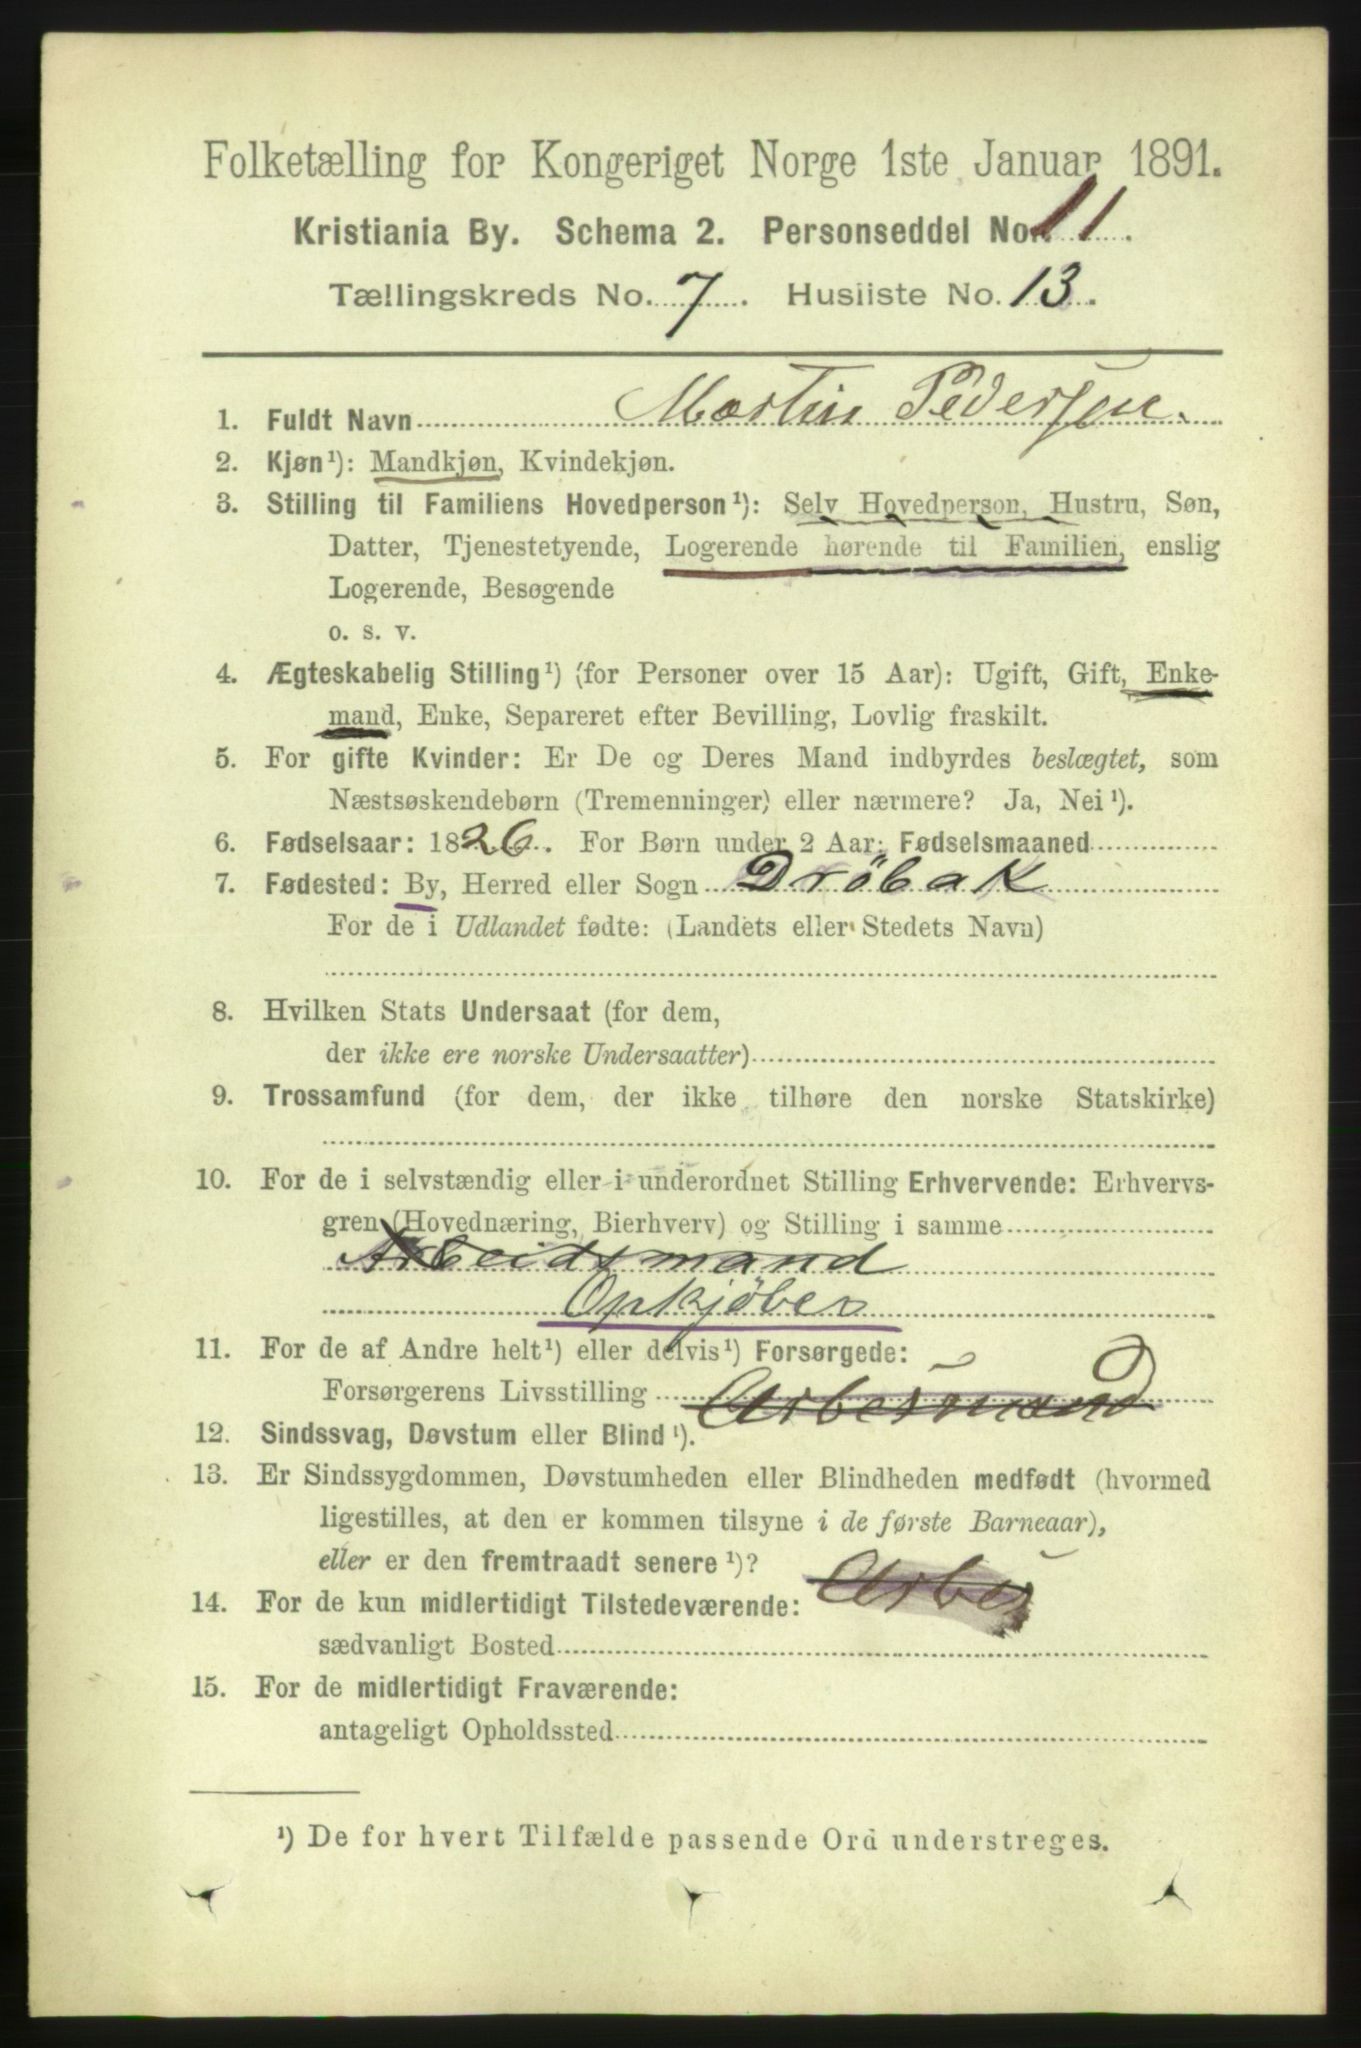 Folketælling for Kongeriget Norge 1ste Januar 1891.
Kristiania By. Schema 2. Personseddel No. 11.
Tællingskreds No. 7. Husliste No. 13.
1. Fuldt Navn Martin Pedersen.
2. Kjøn¹): Mandkjøn, Kvindekjøn.
3. Stilling til Familiens Hovedperson¹): Selv Hovedperson, Hustru, Søn,
Datter, Tjenestetyende, Logerende hørende til Familien, enslig
Logerende, Besøgende
o. s. v.
4. Ægteskabelig Stilling¹) (for Personer over 15 Aar): Ugift, Gift, Enke-
mand, Enke, Separeret efter Bevilling, Lovlig fraskilt.
5. For gifte Kvinder: Er De og Deres Mand indbyrdes beslægtet, som
Næstsøskendebørn (Tremenninger) eller nærmere? Ja, Nei¹).
6. Fødselsaar: 1826. For Børn under 2 Aar: Fødselsmaaned
7. Fødested: By, Herred eller Sogn Dröbak
For de i Udlandet fødte: (Landets eller Stedets Navn)
8. Hvilken Stats Undersaat (for dem,
der ikke ere norske Undersaatter)
9. Trossamfund (for dem, der ikke tilhøre den norske Statskirke)
10. For de i selvstændig eller i underordnet Stilling Erhvervende: Erhvervs-
gren (Hovednæring, Bierhverv) og Stilling i samme
Arbeidsmand
Opkjöber
11. For de af Andre helt¹) eller delvis¹) Forsørgede:
Forsørgerens Livsstilling
12. Sindssvag, Døvstum eller Blind¹).
13. Er Sindssygdommen, Døvstumheden eller Blindheden medfødt (hvormed
ligestilles, at den er kommen tilsyne i de første Barneaar),
eller er den fremtraadt senere¹)?
14. For de kun midlertidigt Tilstedeværende:
sædvanligt Bosted
15. For de midlertidigt Fraværende:
antageligt Opholdssted
¹) De for hvert Tilfælde passende Ord understreges.